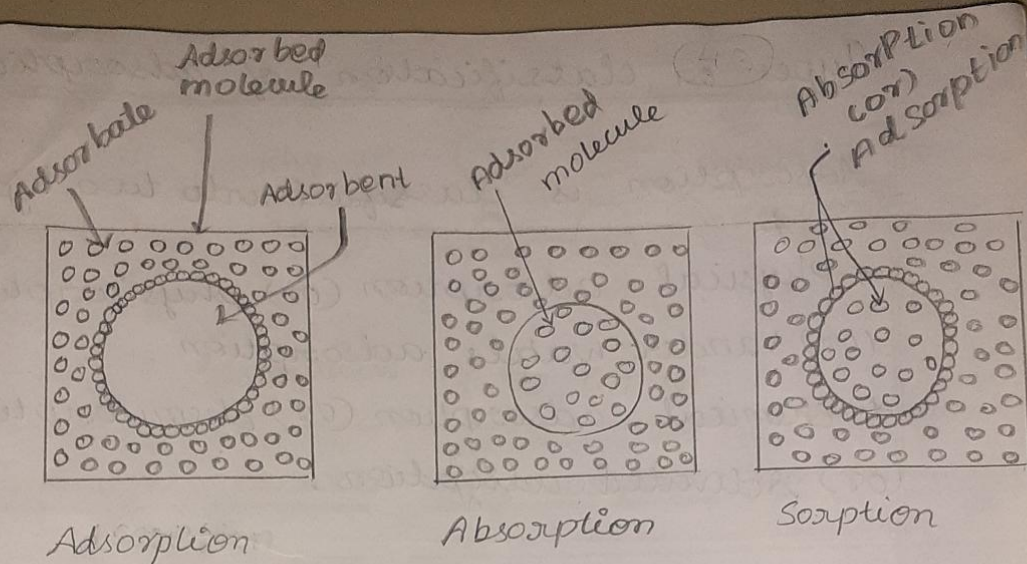 Adsorbed
molecule
Adsorbate
Adsorbent
Adsorbed
molecule
Absorption
(or)
Adsorption
Adsorption
Absorption
Sorption